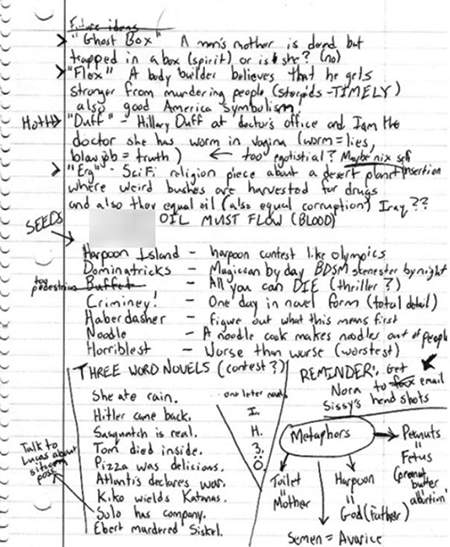 Future ideas
"Ghost Box" A man's mother is dead but
trapped in a box (spirit) or is she? (no)
"Flex" A body builder believes that he gets
stronger from murdering people (steroids - TIMELY)
also good America symbolism
Hott! "Duff" - Hillary Duff at doctor's office and I am the
doctor she has worm in vagina (worm = lies,
blowjob = truth) ← too egotistial? Maybe nix self insertion
"Erg" - SciFi religion piece about a desert planet
where weird bushes are harvested for drugs
and also they equal oil (also equal corruption) Iraq??
OIL MUST FLOW (BLOOD)
SEEDS
Harpoon Island - harpoon contest like olympics
Dominatricks - Magician by day BDSM scenester by night
too pedestrian Buffet - All you can DIE (thriller?)
Criminey! - One day in novel form (total detail)
Haberdasher - Figure out what this means first
Noodle - A noodle cook makes noodles out of people
Horriblest - Worse than worse (worstest)
THREE WORD NOVELS (contest?)
She ate rain.
Hitler came back.
Sasquatch is real.
Tom died inside.
Pizza was delicious.
Atlantis declares war.
Kiko wields Katanas.
Solo has company.
Ebert murdered Siskel.
Talk to
Lucas about
sitcom
poss.
one letter novels
I.
H.
3.
Ö.
REMINDER: Get
Nora to fax email
Sissy's head shots
Metaphors
Peanuts
=
Fetus
(peanut
butter
abortion)
Toilet
=
Mother
Harpoon
=
God (father)
Semen = Avarice